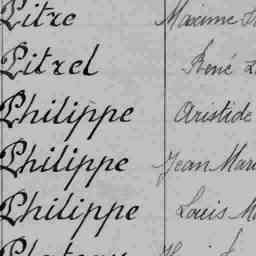 Pitre Maxime
Pitrel René
Philippe Aristide
Philippe Jean Mari
Philippe Louis M